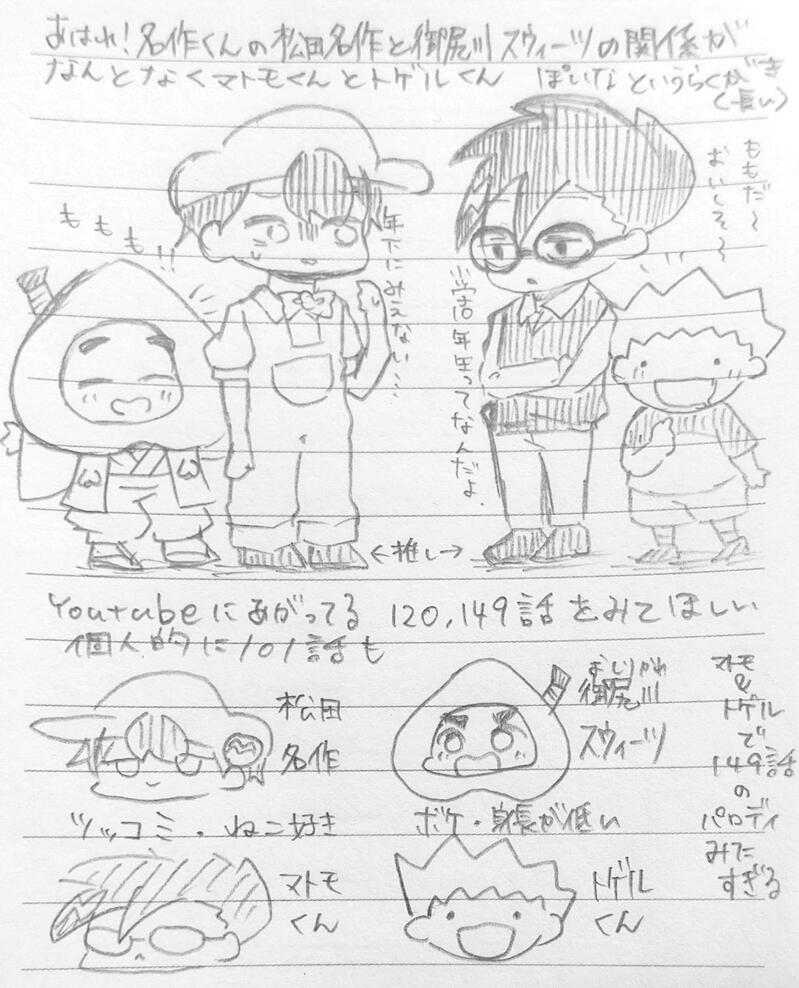 あはれ!名作くんの松田名作と御尻川スウィーツの関係が
なんとなくマトモくんとトゲルくん ぽいなというらくがき
(長い)
ももも!!
年下にみえない…
小学吉年生ってなんだよ.
ももだ〜
おいしそ〜
←推し→
Youtubeにあがってる 120,149話をみてほしい
個人的に101話も
松田
名作
ツッコミ・ねこ好き
おしりがわ
御尻川
スウィーツ
ボケ・身長が低い
マトモ
くん
トゲル
くん
マトモ
&
トゲル
で
149話
の
パロディ
みた
すぎる